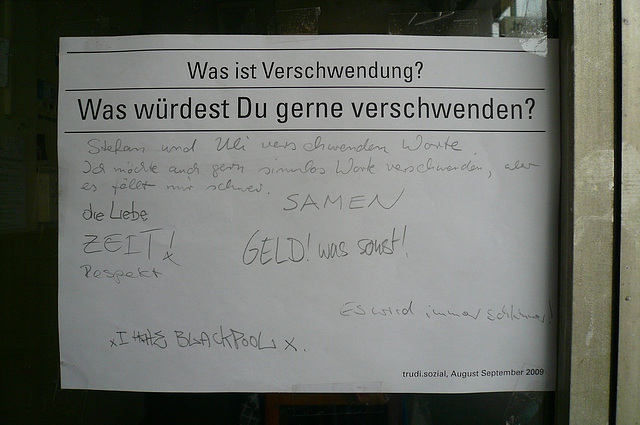 Was ist Verschwendung?
Was würdest Du gerne verschwenden?
Stefan und Uli verschwenden Worte.
Ich möchte auch gern sinnlos Worte verschwenden, aber
es fällt mir schwer.
SAMEN
die Liebe
ZEIT!
GELD! was sonst!
Respekt
Es wird immer schlimmer!
x I HATE BLACKPOOL x.
trudi.sozial, August September 2009